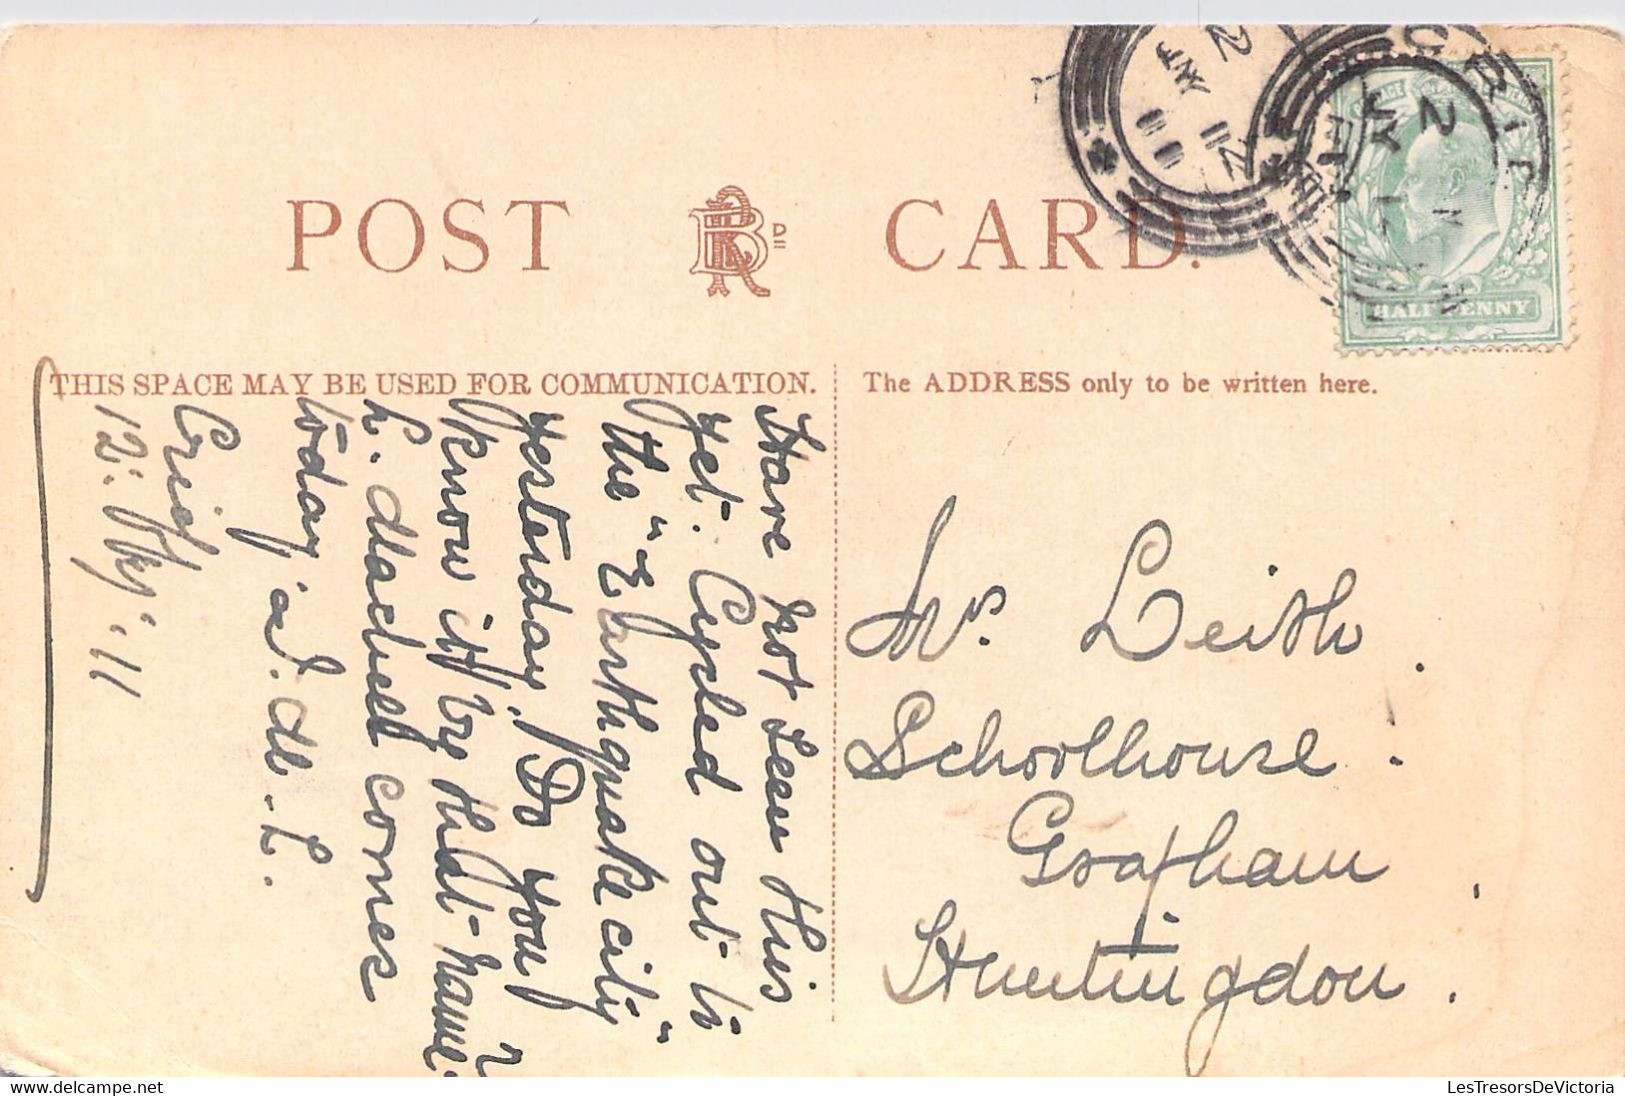 POST RB Dº CARD.
THIS SPACE MAY BE USED FOR COMMUNICATION.
The ADDRESS only to be written here.
HALFPENNY
CRIEFF
Have not seen this
yet. Cycled out to
the "Earthquake city"
yesterday. Do you
know it by that name?
L. MacNeil comes
today. A. M. L.
Crieff
12. July. 11
Mrs. Leith.
Schoolhouse.
Grafham.
Huntingdon.
LesTresorsDeVictoria
www.delcampe.net